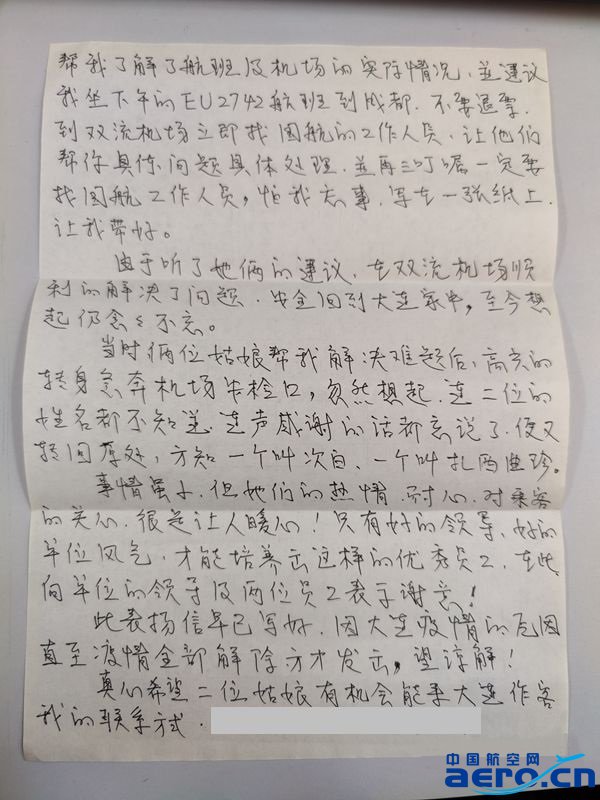 帮我了解了航班及机场的实际情况,并建议
我坐下午的EU2742航班到成都.不要退票.
到双流机场立即找国航的工作人员、让他们
帮你具体问题具体处理.并再三叮嘱一定要
找国航工作人员,怕我忘事.写在一张纸上.
让我带好。
由于听了她俩的建议.在双流机场顺
利的解决了问题.安全回到大连家中,至今想
起仍念念不忘。
当时俩位姑娘帮我解决难题后,高兴的
转身急奔机场安检口,忽然想起.连二位的
姓名都不知道.连声感谢的话都忘说了.便又
转回原处,方知一个叫次白、一个叫扎西曲珍。
事情虽小.但她们的热情.耐心.对乘客
的关心.很是让人暖心!只有好的领导、好的
单位风气,才能培养出这样的优秀员工.在此
向单位的领导及两位员工表示谢意!
此表扬信早已写好.因大连疫情的原因
直至疫情全部解除方才发出,望谅解!
真心希望二位姑娘有机会能来大连作客
我的联系方式.
中国航空网
aero.cn